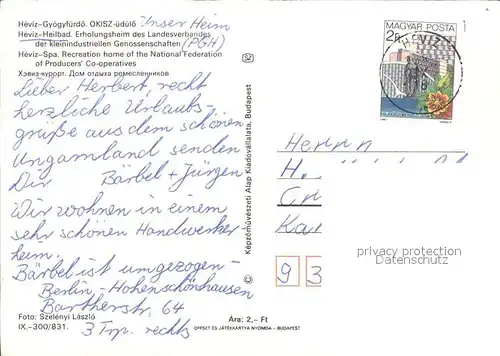 Hévíz-Gyógyfürdő. OKISZ-üdülő Unser Heim
Hévíz-Heilbad. Erholungsheim des Landesverbandes
der kleinindustriellen Genossenschaften (PGH)
Hévíz-Spa. Recreation home of the National Federation
of Producers' Co-operatives
Хэвиз-курорт. Дом отдыха ремесленников
Lieber Herbert, recht
herzliche Urlaubs-
grüße aus dem schönen
Ungarnland senden
Dir Bärbel + Jürgen
Wir wohnen in einem
sehr schönen Handwerker-
heim.
Bärbel ist umgezogen -
Berlin-Hohenschönhausen
Bartherstr. 64
3 Trp. rechts
Foto: Szelényi László
IX.-300/831.
Ára: 2,- Ft
OFFSET ÉS JÁTÉKKÁRTYA NYOMDA - BUDAPEST
Képzőművészeti Alap Kiadóvállalata, Budapest
MAGYAR POSTA
2Ft
HÉVÍZ
Herrn
H.
Cr
Kar
9 3
privacy protection
oldthing.com